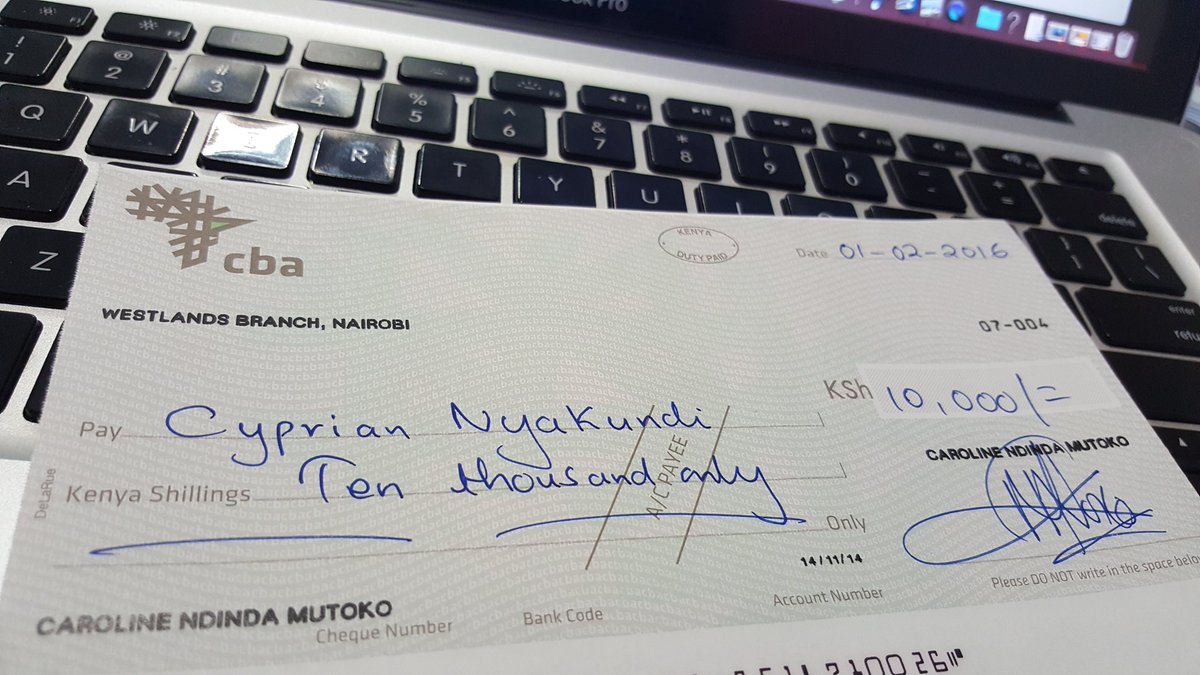 F1
F2
F5
!
1
@
2
#
3
4
%
5
^
6
&
7
*
8
9
0
delete
Q
W
R
T
Y
U
A
Z
enter
cba
KENYA
DUTY PAID
Date 01-02-2016
WESTLANDS BRANCH, NAIROBI
07-004
Pay Cyprian Nyakundi
KSh 10,000/=
A/C PAYEE
CAROLINE NDINDA MUTOKO
Kenya Shillings Ten thousand only
Only
DeLaRue
14/11/14
Please DO NOT write in the space below
CAROLINE NDINDA MUTOKO
Cheque Number
Bank Code
Account Number